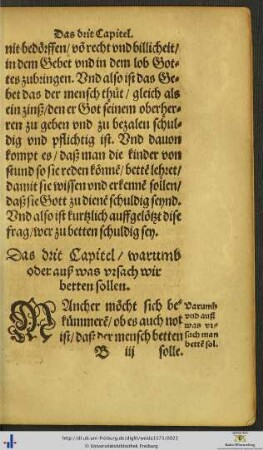 Das drit Capitel.
nit bedörffen/ vō recht vnd billicheit/
in dem Gebet vnd in dem lob Got-
tes zubringen. Vnd also ist das Ge-
bet das der mensch thůt/ gleich als
ein zinß/ den er Got seinem oberher-
ren zu geben vnd zu bezalen schul-
dig vnd pflichtig ist. Vnd dauon
kompt es/ daß man die kinder von
stund so sie reden könnē/ bettē lehret/
damit sie wissen vnd erkennē sollen/
daß sie Gott zu dienē schuldig seynd.
Vnd also ist kurtzlich auffgelötzt dise
frag/ wer zu betten schuldig sey.
Das drit Capitel/ warumb
oder auß was vrsach wir
betten sollen.
MAncher möcht sich be
kümmerē/ ob es auch not
ist/ daß der mensch betten
Warumb
vnd auß
was vr-
sach man
bettē sol.
B iij solle.
http://dl.ub.uni-freiburg.de/diglit/weida1571/0022
© Universitätsbibliothek Freiburg